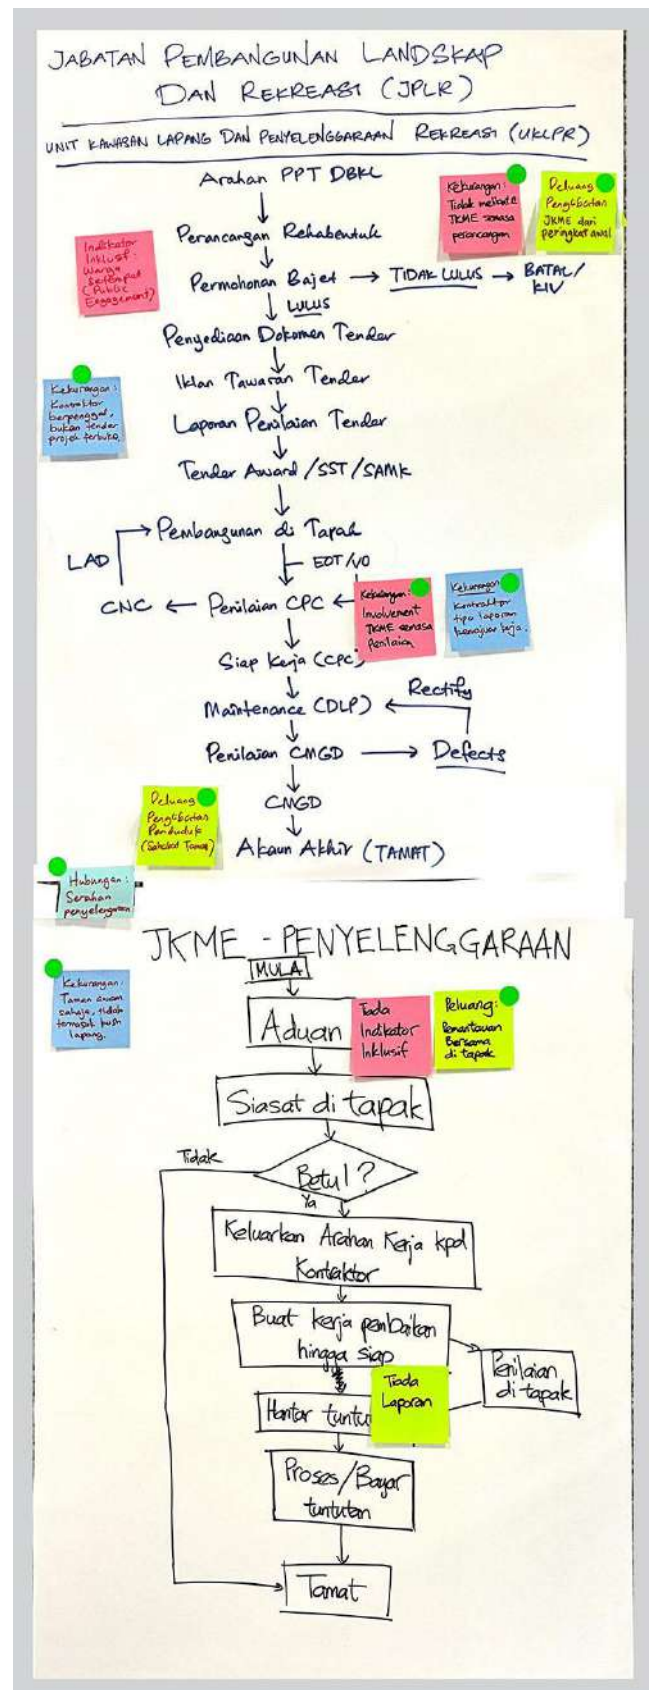 JABATAN PEMBANGUNAN LANDSKAP
DAN REKREASI (JPLR)
UNIT KAWASAN LAPANG DAN PENYELENGGARAAN REKREASI (UKLPR)
Arahan PPT DBKL
Kekurangan:
Tidak melibat
JKME semasa
perancangan
Peluang
Penglibatan
JKME dari
peringkat awal
Perancangan Rehabentuk
Indikator
Inklusif:
Warga
Setempat
(Public
Engagement)
Permohonan Bajet → TIDAK LULUS → BATAL/
KIV
LULUS
Penyediaan Dokumen Tender
Iklan Tawaran Tender
Kekurangan:
Kontraktor
berpenggal,
bukan tender
projek terbuka.
Laporan Penilaian Tender
Tender Award/SST/SAMK
Pembangunan di Tapak
LAD
EOT/VO
CNC ← Penilaian CPC
Kekurangan:
Involvement
JKME semasa
Penilaian
Kekurangan
Kontraktor
tipu laporan
kemajuan kerja.
Siap Kerja (CPC)
Maintenance (DLP)
Rectify
Penilaian CMGD → Defects
CMGD
Peluang
Penglibatan
Penduduk
(Sahabat Taman)
Akaun Akhir (TAMAT)
Hubungan:
Serahan
penyelenggaraan
JKME - PENYELENGGARAAN
MULA
Kekurangan:
Taman awam
sahaja, tidak
termasuk
lapang.
Aduan
Tiada
Indikator
Inklusif
Peluang:
Pemantauan
Bersama
di tapak
Siasat di tapak
Tidak
Betul?
Ya
Keluarkan Arahan Kerja kpd
Kontraktor
Buat kerja pembaikan
hingga siap
Penilaian
di tapak
Tiada
Laporan
Hantar tuntu
Proses/Bayar
tuntutan
Tamat